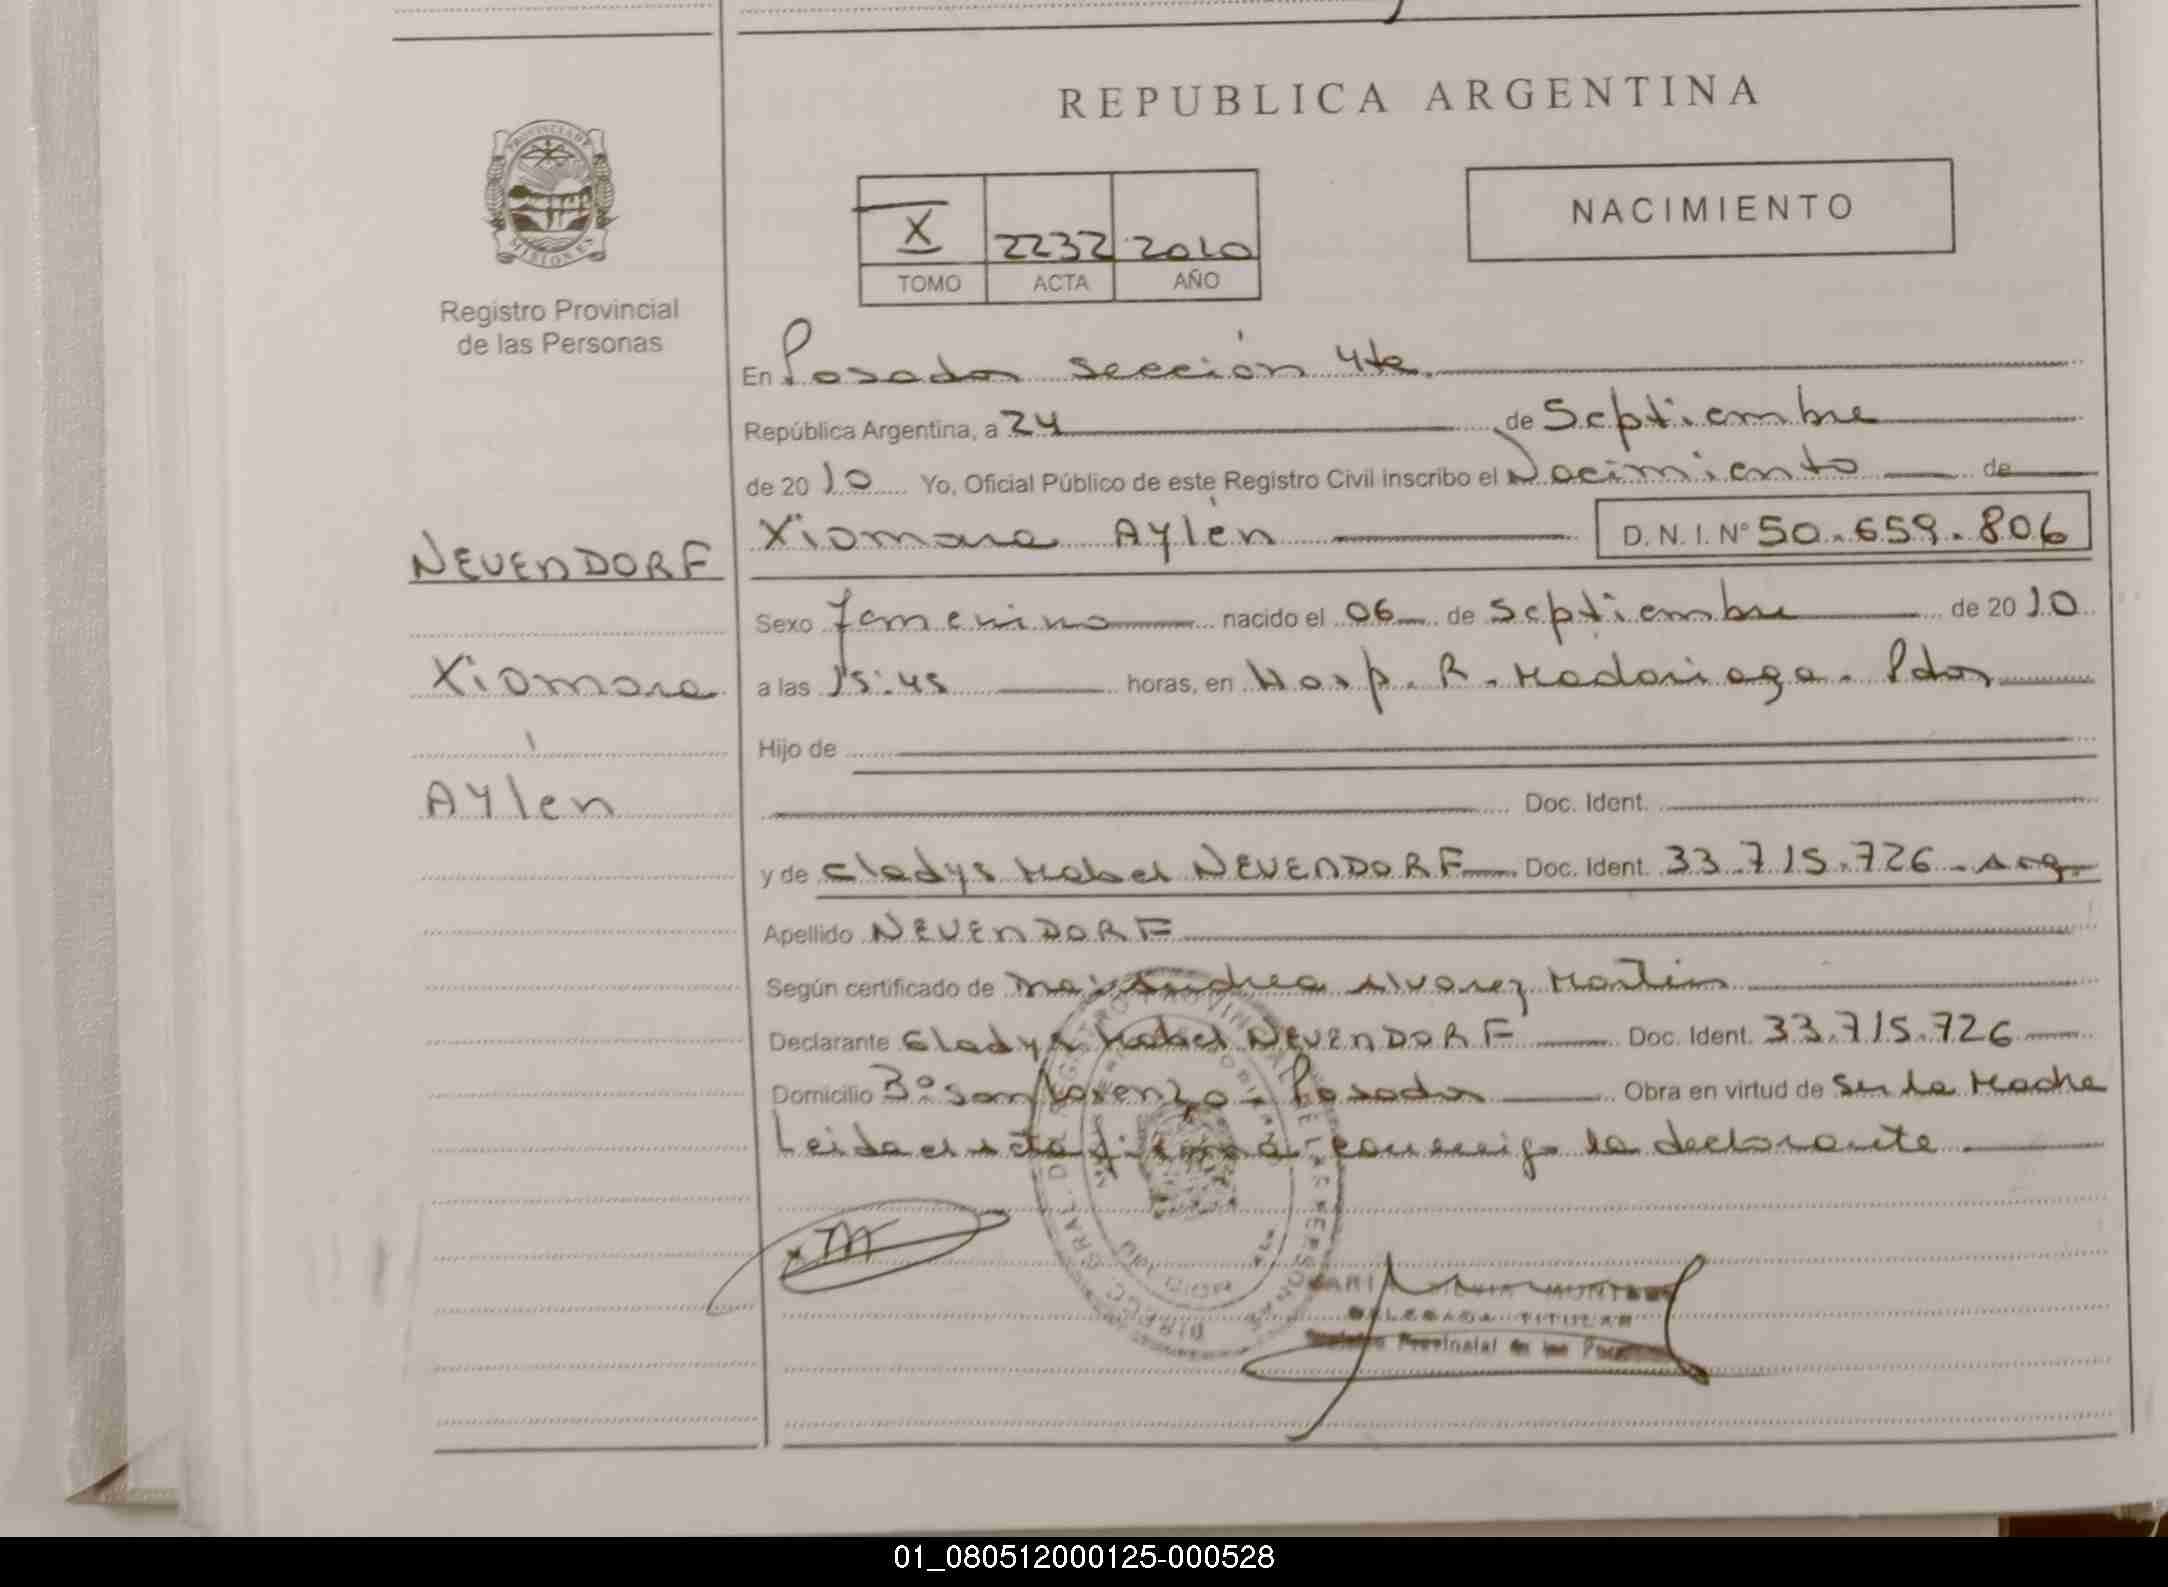 REPUBLICA ARGENTINA
PROVINCIA DE
MISIONES
Registro Provincial
de las Personas
X 2232 2010
TOMO ACTA AÑO
NACIMIENTO
En Posadas sección 4ta.
República Argentina, a 24 de Septiembre
de 2010 Yo, Oficial Público de este Registro Civil inscribo el Nacimiento de
NEUENDORF
Xiomara Aylén D. N. I. N° 50.659.806
Sexo femenino nacido el 06 de Septiembre de 2010
Xiomara
a las 15:45 horas, en Hosp. R. Madariaga. Pdas
Hijo de
Aylén
Doc. Ident.
y de Gladys Mabel NEUENDORF Doc. Ident. 33.715.726 - Arg.
Apellido NEUENDORF
Según certificado de Andrea Alvarez Martin
Declarante Gladys Mabel NEUENDORF Doc. Ident. 33.715.726
Domicilio B° San Lorenzo - Posadas Obra en virtud de Ser la Madre
Leida el acta firma conmigo la declarante
DELEGADA TITULAR
Registro Provincial de las Personas
01_080512000125-000528